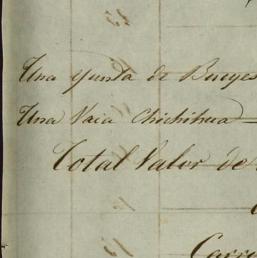 Una yunta de Bueyes
Una Vaca Chichihua
Total Valor de
Carre